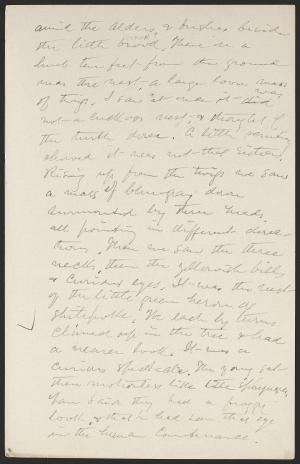 amid the alders & bushes beside
the little brook. There in a
bush ten feet from the ground
was the nest, a large loose mass
of twigs. I saw at once it was
not a cuckoos nest & thought of
the turtle dove. A little scrutiny
showed it was not that either.
Rising up from the twigs we saw
a mass of blue-gray down
surmounted by three heads
all pointing in different direc-
tions. Then we saw the three
necks, then the yellowish bills
& curious eyes. It was the nest
of the little green heron or
shitepoke. We each by turns
climbed up in the tree & had
a nearer look. It was a
curious spectacle. The young sat
there motionless like little
Sam said they had a froggy
look, & that he had seen that eye
in the human countenance.